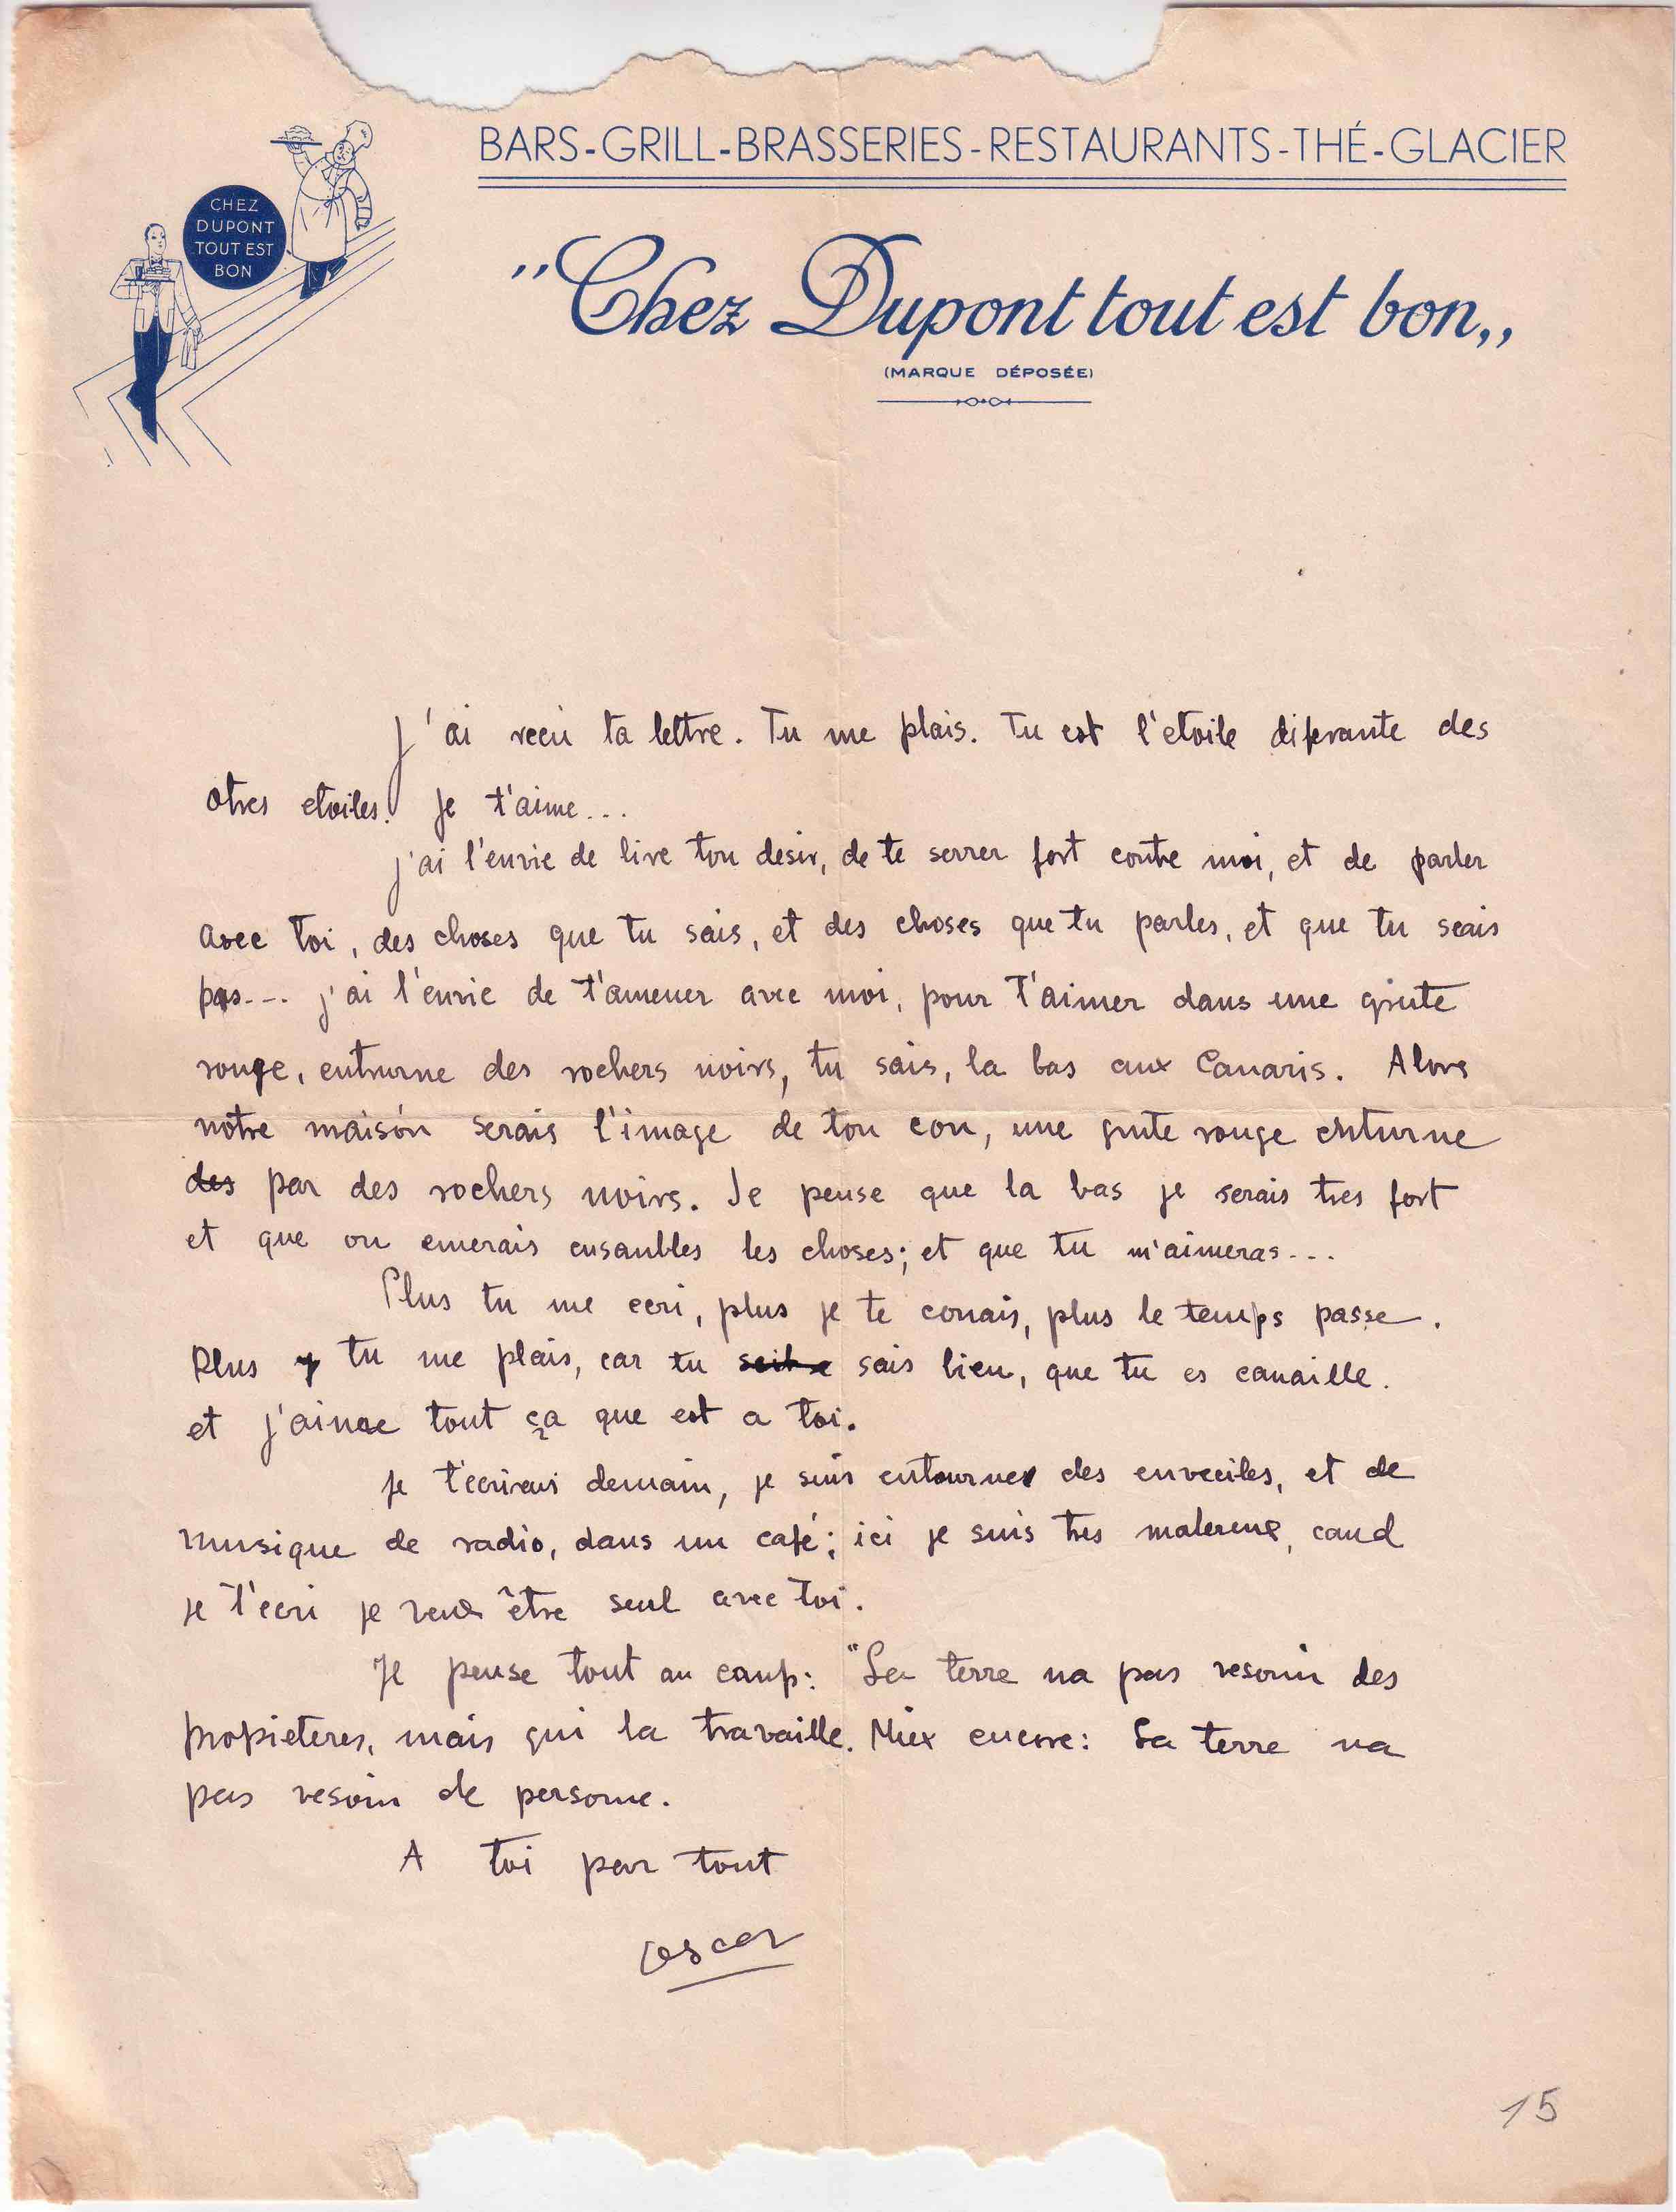 BARS-GRILL-BRASSERIES-RESTAURANTS-THÉ-GLACIER
CHEZ
DUPONT
TOUT EST
BON
"Chez Dupont tout est bon„
(MARQUE DÉPOSÉE)
J'ai recu ta lettre. Tu me plais. Tu est l'etoile diferante des
otres etoiles. Je t'aime...
j'ai l'envie de live ton desir, de te serrer fort contre moi, et de parler
avec toi, des choses que tu sais, et des choses que tu parles, et que tu seais
pas... j'ai l'envie de t'amener avec moi, pour t'aimer dans une grute
rouge, enturne des rochers noirs, tu sais, la bas aux Canaris. Alors
notre maisón serais l'image de ton con, une grute rouge enturne
des par des rochers noirs. Je pense que la bas je serais tres fort
et que on emerais ensanbles les choses; et que tu m'aimeras...
Plus tu me ecri, plus je te conais, plus le temps passe.
Plus tu me plais, car tu sais bien, que tu es canaille.
et j'aime tout ça que est a toi.
Je t'ecrirais demain, je suis entourner des enveciles, et de
musique de radio, dans un café; ici je suis tres malereux, cand
je t'ecri je veux être seul avec toi.
Je pense tout au camp: "La terre na pas vesoin des
propieteres, mais qui la travaille. Miex encore: La terre na
pas vesoin de persone.
A toi par tout
Oscar
15